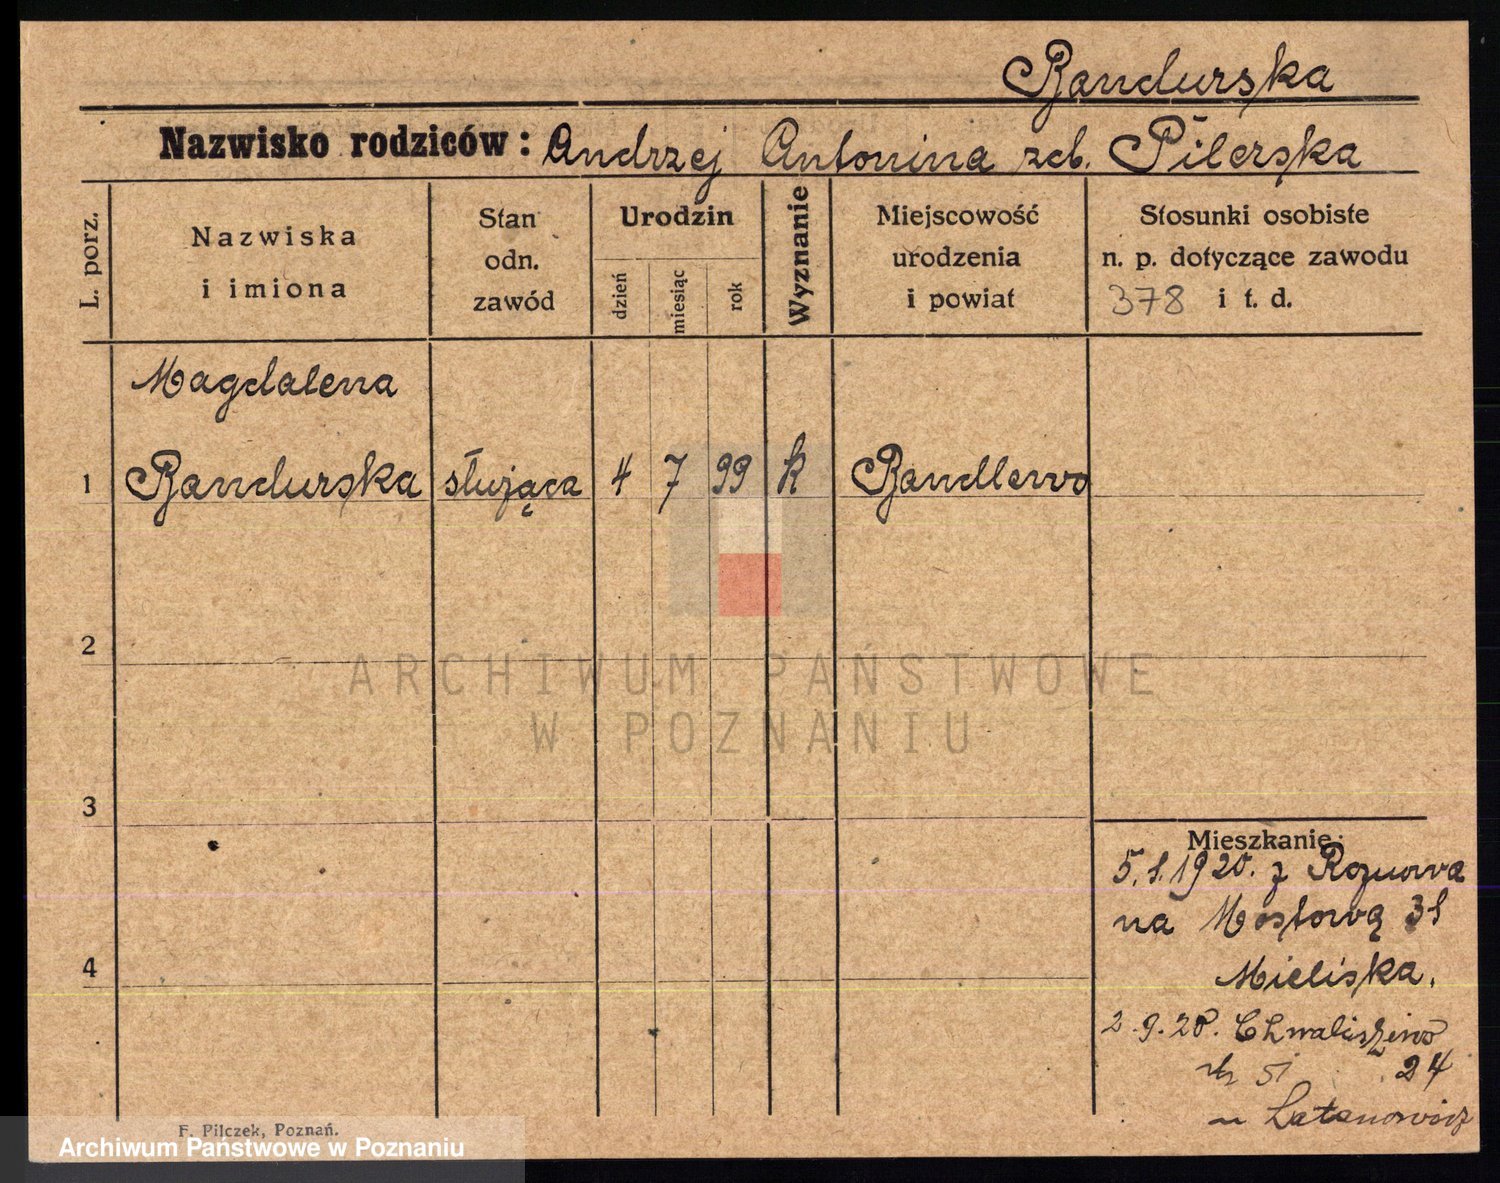 Bandurska
Nazwisko rodziców: Andrzej Antonina zeb. Pilerska
L. porz.
Nazwiska
i imiona
Stan
odn.
zawód
Urodzin
dzień
miesiąc
rok
Wyznanie
Miejscowość
urodzenia
i powiat
Stosunki osobiste
n. p. dotyczące zawodu
378 i t. d.
Magdalena
1 Bandurska służąca 4 7 99 k Bandlewo
2
3
4
Mieszkanie:
5.1.1920. z
na Mostową 31
Mieliska.
2.9.20. Chwaliszewo
51 24
Latanowicz
F. Pilczek, Poznań.
ARCHIWUM PAŃSTWOWE
W POZNANIU
Archiwum Państwowe w Poznaniu